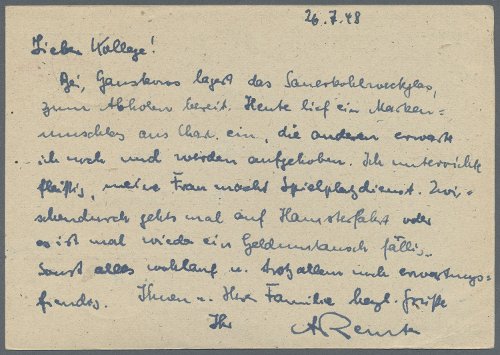 26.7.48
Lieber Kollege!
Bei lagert das
zum Abholen bereit. Heute lief ein Marken-
umschlag aus ein, die anderen erwarte
ich noch und werden aufgehoben. Ich unterrichte
fleißig, meine Frau macht Spielplatzdienst. Zwi-
schendurch gehts mal auf Hamsterfahrt oder
es ist mal wieder ein Geldumtausch fällig.
Sonst alles wohlauf u. trotz allem noch erwartungs-
freudig. Ihnen u. Ihrer Familie herzl. Grüße
Ihr